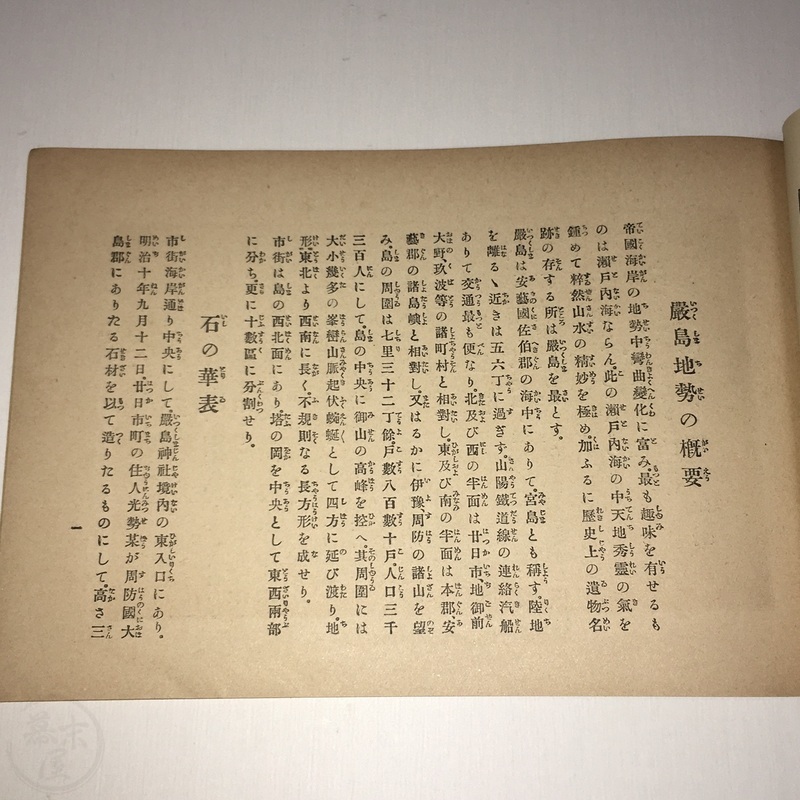 嚴島地勢の概要
帝國海岸の地勢中彎曲變化に富み、最も趣味を有せるも
のは瀨戸內海ならん。此の瀨戸內海の中天地秀靈の氣を
鍾めて粹然山水の精妙を極め加ふるに歷史上の遺物名
跡の存する所は嚴島を最とす。
嚴島は安藝國佐伯郡の海中にありて、宮島とも稱す。陸地
を離るゝ近きは五六丁に過ぎす。山陽鐵道線の連絡汽船
ありて交通最も便なり。北及び西の半面は廿日市、地御前
大野、玖波等の諸町村と相對し、東及び南の半面は本郡安
藝郡の諸島嶼と相對し、又はるかに伊豫、周防の諸山を望
み、島の周圍は七里三十二丁餘、戸數八百數十戸、人口三千
三百人にして、島の中央に御山の高峰を控へ、其周圍には
大小幾多の峯巒山脈起伏蜿蜒として四方に延び渡り、地
形、東北より西南に長く、不規則なる長方形を成せり。
市街は島の西北面にあり、塔の岡を中央として東西兩部
に分ち、更に十數區に分割せり。
石の華表
市街海岸通り中央にして、嚴島神社境內の東入口にあり。
明治十年九月十二日、廿日市町の住人光勢某が周防國大
島郡にありたる石材を以て造りたるものにして、高さ三
一
幕末屋